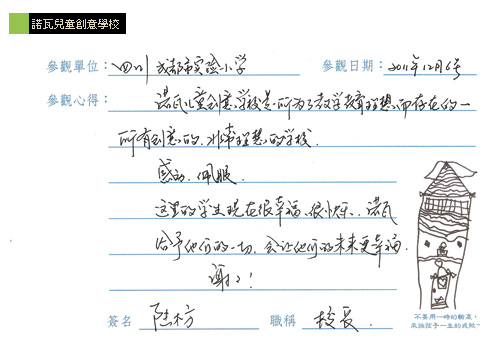 諾瓦兒童創意學校
參觀單位：四川 成都市实验小学 參觀日期：2011年12月6号
參觀心得：诺瓦儿童创意学校是所为了教学教育理想而存在的一
所有创意的、非常理想的学校.
感动、佩服.
这里的学生现在很幸福、很快乐. 诺瓦
给予他们的一切, 会让他们的未来更幸福.
谢谢!
不要用一時的輸贏，
來論孩子一生的成敗
簽名 陆枋 職稱 校长.